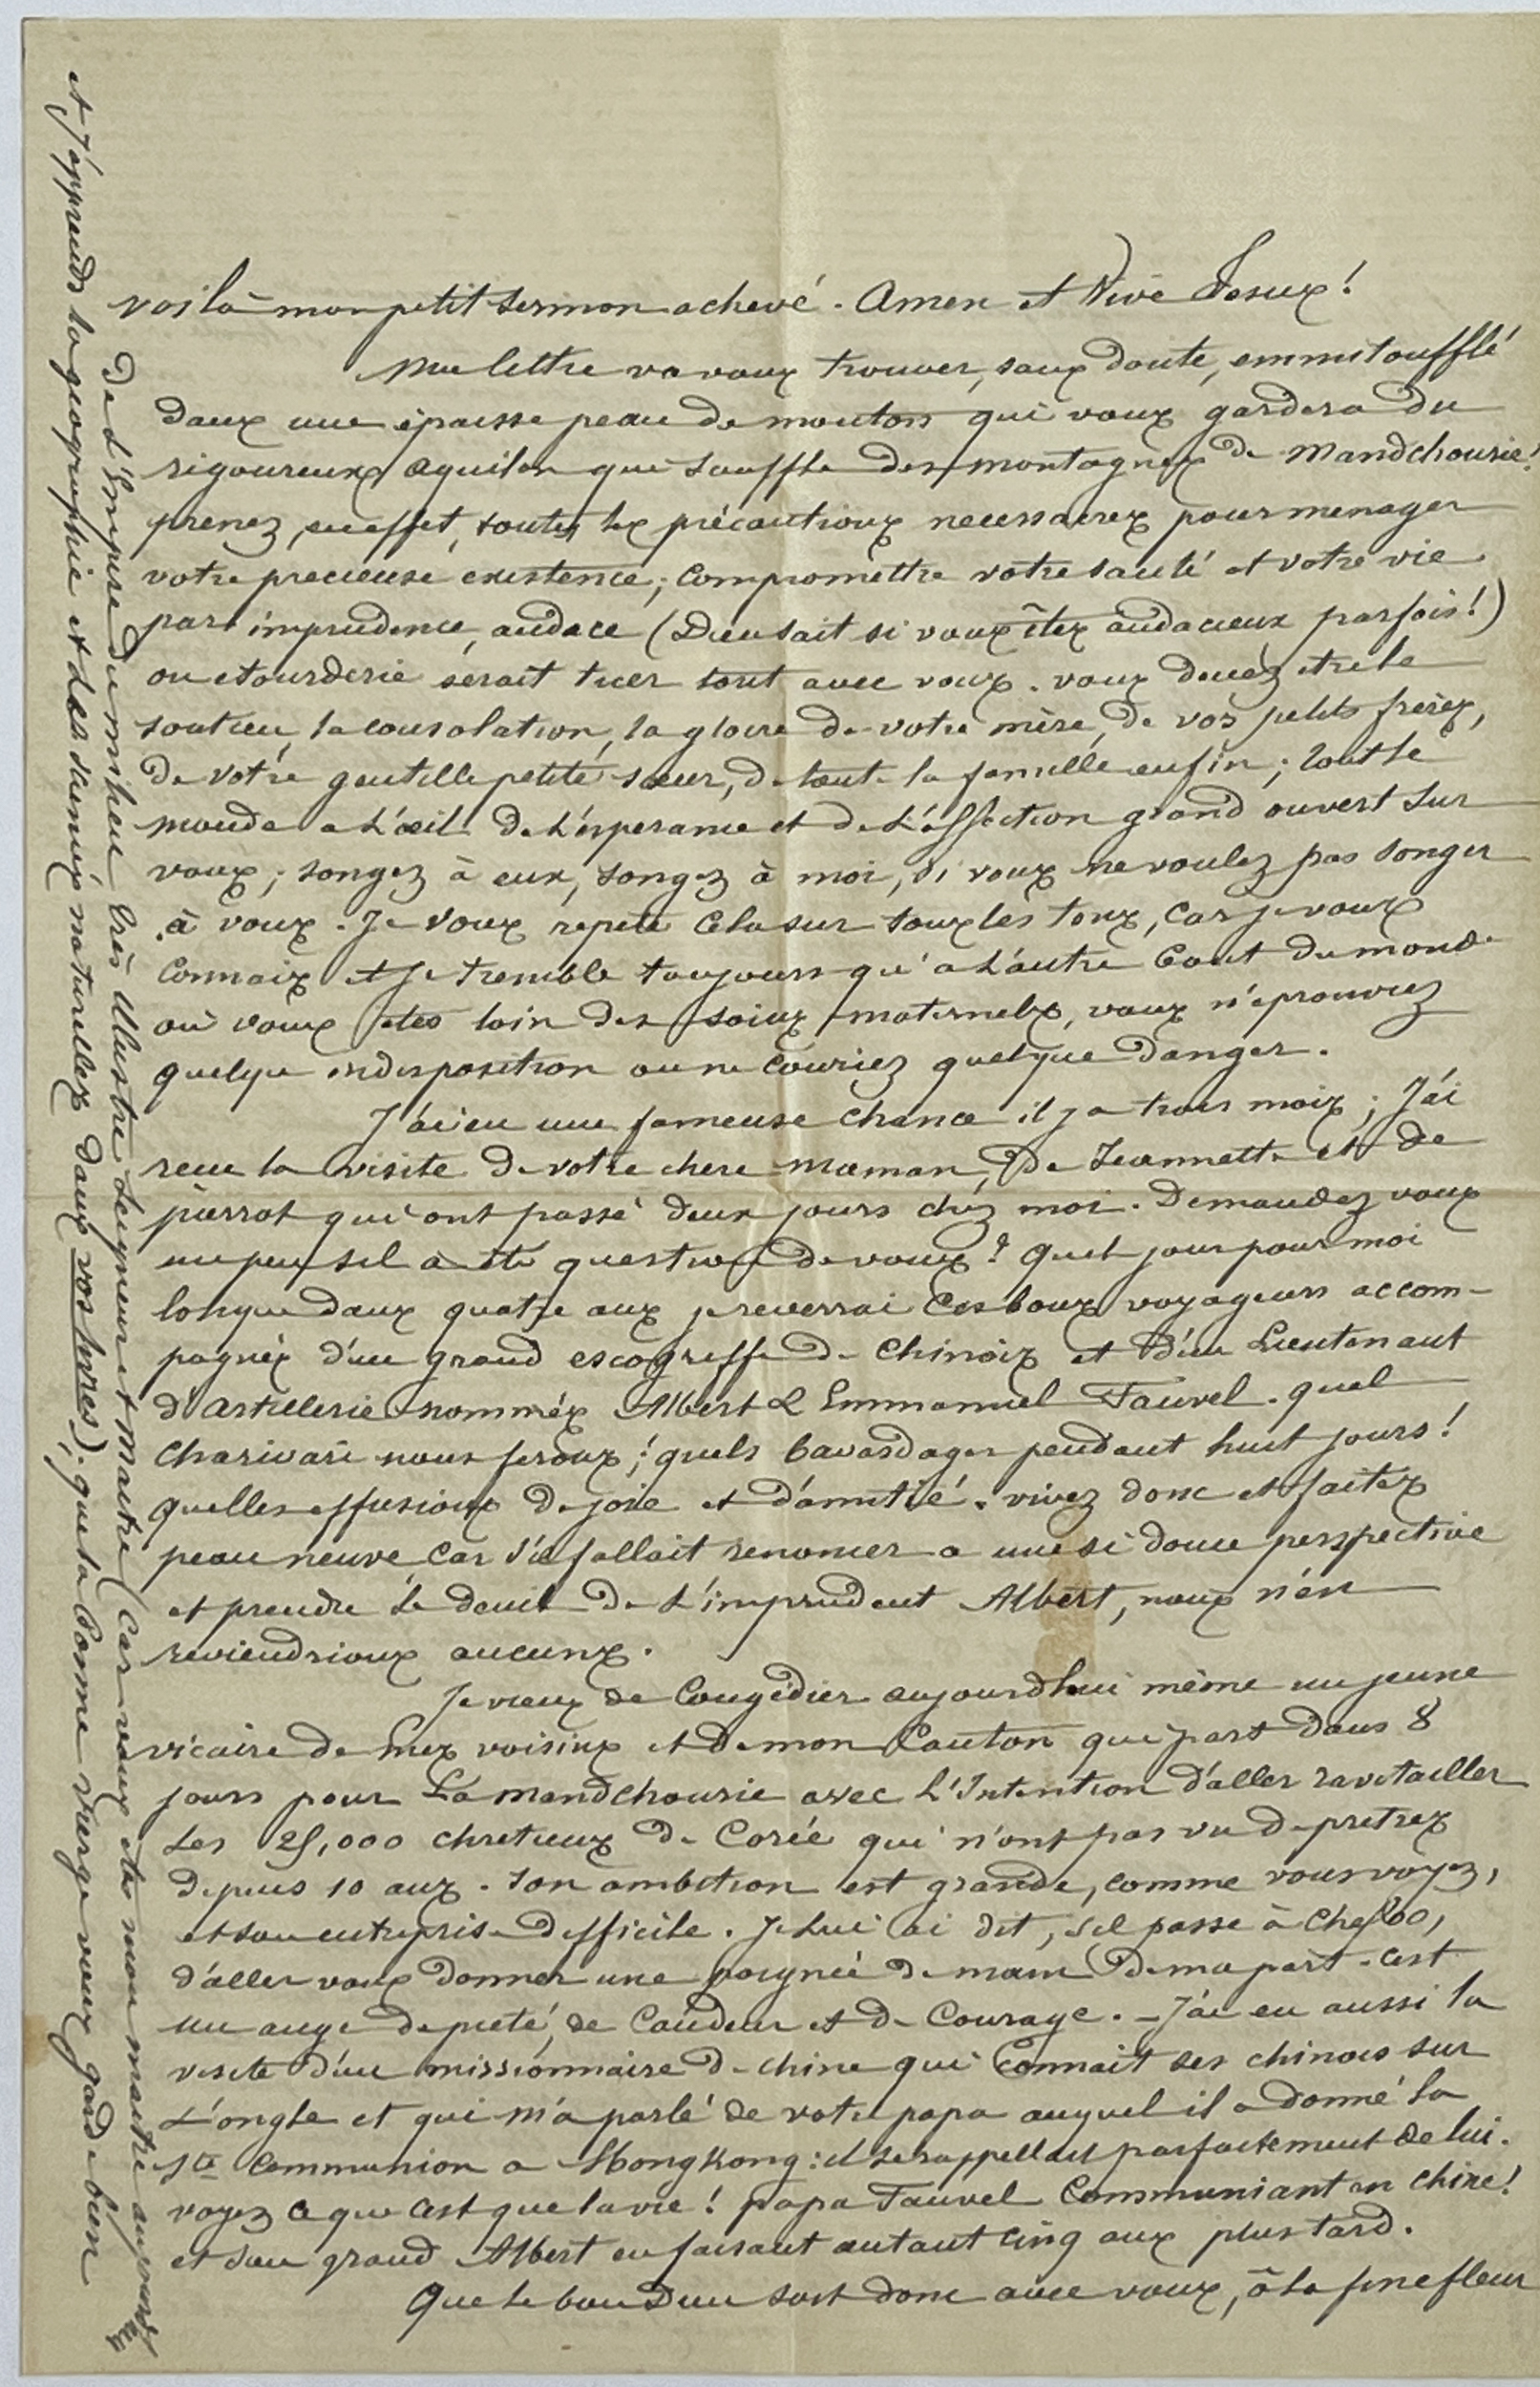 voilà mon petit sermon achevé. Amen et Vive Jesux!
Ma lettre va voux trouver, sanx doute, emmitoufflé
danx une épaisse peau de mouton qui voux gardera du
rigoureux aquilon qui souffle des montagnex de Mandchourie!
prenez, en effet, toutes lex précautionx necessairex pour menager
votre precieuse existence; compromettre votre santé et votre vie
par imprudence, audace (Dieu sait si voux êtex audacieux parfois!)
ou etourderie serait tuer tout avec voux. voux devez etre le
soutien, la consolation, la gloire de votre mère, de vos petits frèrex,
de votre gentille petite sœur, de toute la famille enfin; tout le
monde a l'œil de l'esperance et de l'affection grand ouvert sur
voux; songez à eux, songez à moi, si voux ne voulez pas songer
à voux. Je voux repete cela sur toux les tonx, car je voux
connaix et je tremble toujours qu'a l'autre bout du monde
où voux etes loin des soinx maternelx, voux n'eprouviez
quelque indisposition ou ne couriez quelque danger.
J'ai eu une fameuse chance il y a trois moix; J'ai
recu la visite de votre chere maman, de Jeannette et de
pierrot qui ont passé deux jours chez moi. Demandez voux
un peu sil a ete question de voux? Quel jour pour moi
lorsque danx quatre anx je reverrai ces bonx voyageurs accom-
pagnéx d'un grand escogriffe de Chinoix et d'un Lieutenant
d'artillerie nomméx Albert & Emmanuel Fauvel. quel
charivari nous feronx! quels bavardages pendant huit jours!
quelles effusionx de joie et d'amitié. vivez donc et faitex
peau neuve car s'il fallait renoncer a une si douce perspective
et prendre le deuil de l'imprudent Albert, noux n'en
reviendrionx aucunx.
Je vienx de congédier aujourd'hui même un jeune
vicaire de mex voisinx et de mon Canton qui part dans 8
jours pour La mandchourie avec l'Intention d'aller ravitailler
les 25,000 chretienx de Corée qui n'ont pas vu de pretrex
depuis 10 anx. Son ambition est grande, comme vous voyez,
et son entreprise difficile. Je lui ai dit, s'il passe à Chefoo,
d'aller voux donner une poignée de main de ma part. c'est
un ange de pieté, de candeur et de courage. - J'ai eu aussi la
visite d'un missionnaire de chine qui connait ses chinois sur
l'ongle et qui m'a parlé de votre papa auquel il a donné la
Ste Communion a HongKong: il se rappellait parfaitement de lui.
voyez ce que cest que la vie! papa Fauvel Communiant en chine!
et son grand Albert en faisant autant cinq anx plus tard.
Que le bon Dieu soit donc avec voux, ô la fine fleur
De l'Empire du milieu très illustre seigneur et maitre (car voux etes mon maitre aujourd'hui
et j'apprends la geographie et les sciencex naturellex danx vos livres). que la bonne vierge voux garde bien